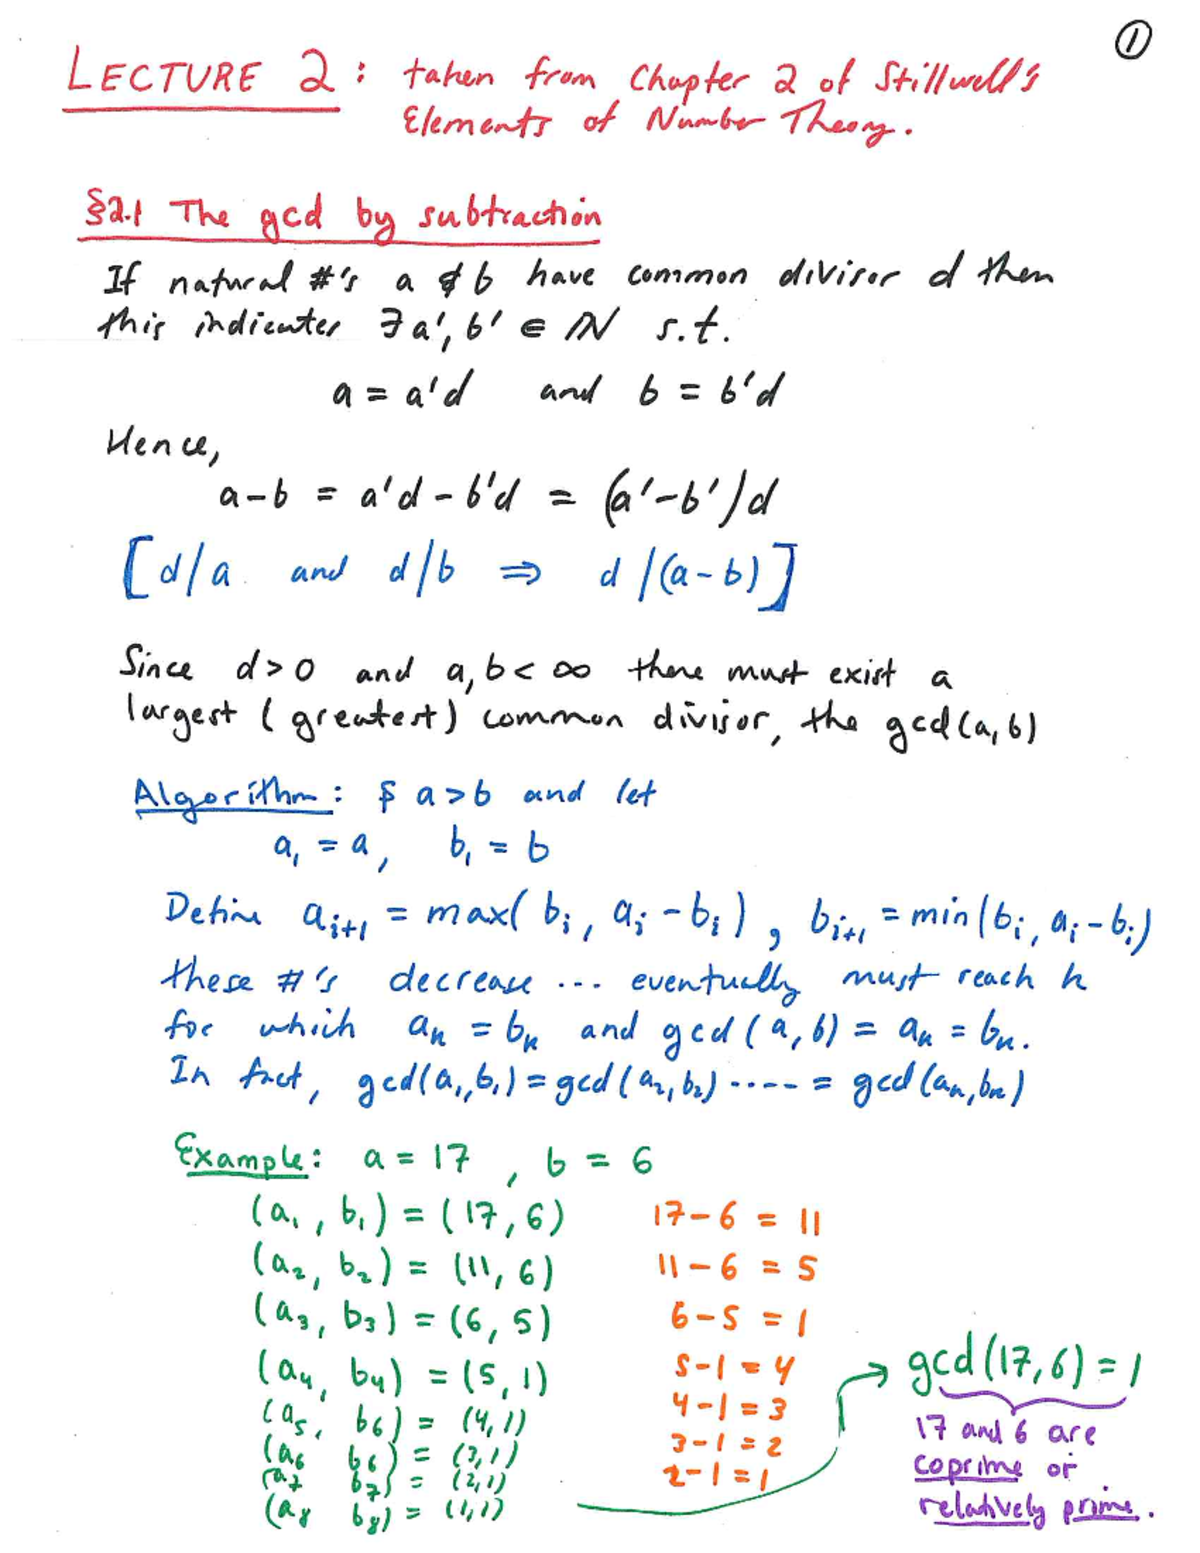 ①
LECTURE 2 : taken from Chapter 2 of Stillwell's
Elements of Number Theory.
§2.1 The gcd by subtraction
If natural #'s a & b have common divisor d then
this indicates ∃ a', b' ∈ ℕ s.t.
a = a'd and b = b'd
Hence,
a-b = a'd - b'd = (a'-b')d
[d/a and d/b ⇒ d/(a-b)]
Since d>0 and a,b < ∞ there must exist a
largest (greatest) common divisor, the gcd(a,b)
Algorithm: $ a>b and let
a₁ = a, b₁ = b
Define aᵢ₊₁ = max(bᵢ, aᵢ-bᵢ), bᵢ₊₁ = min(bᵢ, aᵢ-bᵢ)
these #'s decrease ... eventually must reach k
for which aₖ = bₖ and gcd(a,b) = aₖ = bₖ.
In fact, gcd(a₁,b₁) = gcd(a₂,b₂) ..... = gcd(aₖ,bₖ)
Example: a = 17, b = 6
(a₁, b₁) = (17, 6) 17-6 = 11
(a₂, b₂) = (11, 6) 11-6 = 5
(a₃, b₃) = (6, 5) 6-5 = 1
(a₄, b₄) = (5, 1) 5-1 = 4
(a₅, b₆) = (4, 1) 4-1 = 3
(a₆ b₆) = (3, 1) 3-1 = 2
(a₇ b₇) = (2, 1) 2-1 = 1
(a₈ b₈) = (1, 1)
→ gcd(17,6) = 1
17 and 6 are
coprime or
relatively prime.